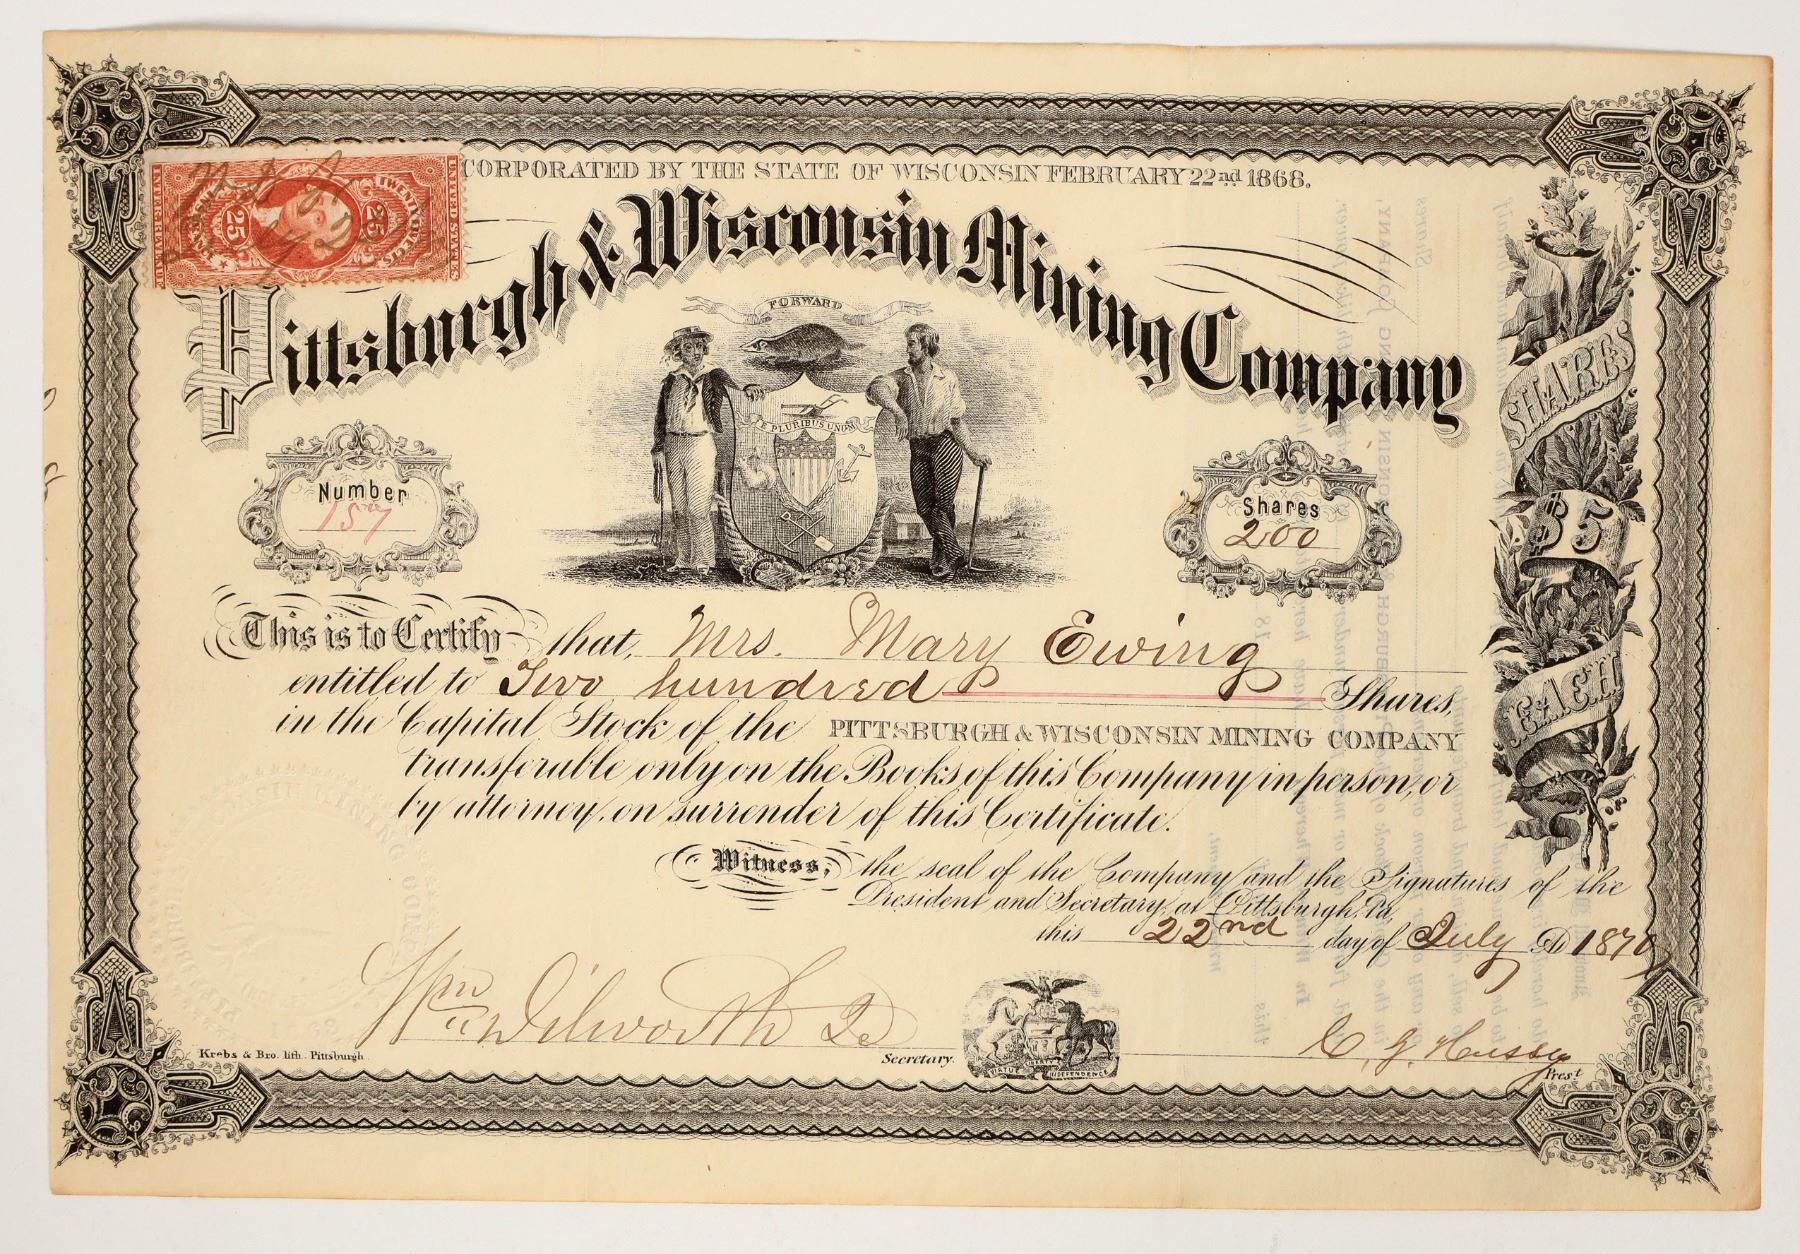 CORPORATED BY THE STATE OF WISCONSIN FEBRUARY 22nd 1868.
UNITED STATES
INTER. REVENUE
TWENTY FIVE CENTS
25
25
Pittsburgh & Wisconsin Mining Company
FORWARD
E PLURIBUS UNUM
Number
157
Shares
200
SHARES
$5
EACH
This is to Certify that, Mrs. Mary Ewing
entitled to Two hundred Shares,
in the Capital Stock of the PITTSBURGH & WISCONSIN MINING COMPANY
transferable only on the Books of this Company in person, or
by attorney, on surrender of this Certificate.
Witness, the seal of the Company and the Signatures of the
President and Secretary, at Pittsburgh, Pa,
this 22nd day of July AD 1870
Wm Dilworth Jr
Secretary.
C. G. Hussey
Pres't
VIRTUE LIBERTY INDEPENDENCE
Krebs & Bro. lith. Pittsburgh